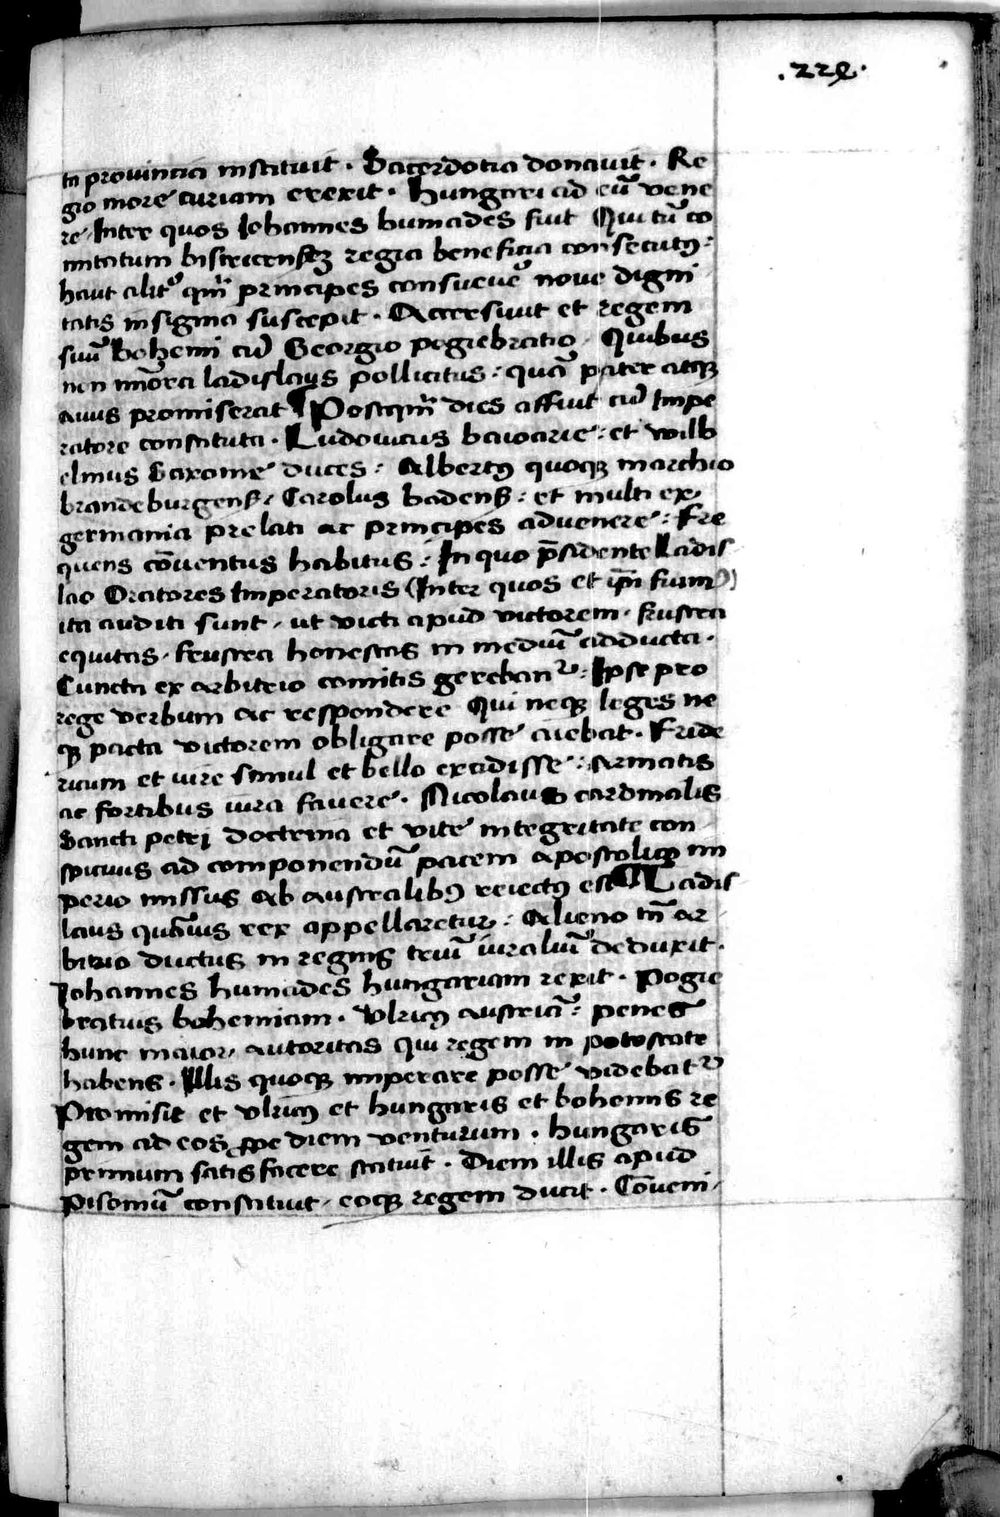 .229.
ta prouincia instituit · Sacerdotia donauit · Re
gio more curiam erexit · Hungari ad eũ vene
re · Inter quos Iohannes huniades fuit Qui tũ co
mitatum bistricensẽ regia beneficia consecutꝰ :
haut alitᵉ qm̃ principes consueuẽ noue digni
tatis insignia suscepit · Accersiuit et regem
suũ bohemi cũ Georgio pogiebratio · Quibus
non mĩora ladislaus pollicitus : quã pater atqꝫ
auus promiserat ¶ Postqm̃ dies affuit cũ Impe
ratore constituta · Ludouicus bauarie : et wilh
elmus Saxonie duces : Albertꝰ quoqꝫ marchio
brandeburgensꝭ · Carolus badensꝭ : et multi ex
germania prelati ac principes aduenere : Fre
quens cõuentus habitus : In quo p̃sidente Ladis
lao Oratores Imperatoris (Inter quos et ip̃i fuimꝰ)
ita auditi sunt · ut victi apud victorem · frustra
equitas · frustra honestas in mediũ adducta ·
Cuncta ex arbitrio comitis gerebant᷑ : Ipse pro
rege verbum ac respondere Qui neqꝫ leges ne
qꝫ pacta victorem obligare posse aiebat · Fride
ricum et iure simul et bello excidisse : armatis
ac fortibus iura fauere · Nicolaus cardinalis
Sancti petri doctrina et vite integritate con
spicuus ad componendũ pacem apostolico im
perio missus ab australibꝰ reiectꝰ est ¶ Ladis
laus quãuis rex appellaretur : Alieno tñ ar
bitrio ductus in regnis triũ iura luũ deduxit ·
Iohannes huniades hungariam rexit · Pogie
bratius bohemiam · Vlricꝰ austriã : penes
hunc maior autoritas qui regem in potestate
habens · Illis quoqꝫ imperare posse videbat᷑
Promisit et vlricꝰ et hungaris et bohemis re
gem ad eos ꝓpe diem venturum · hungaris
primum satisfacere statuit · Diem illis apud
Pisoniũ constituit · eoqꝫ regem ducit · Cõueni ·